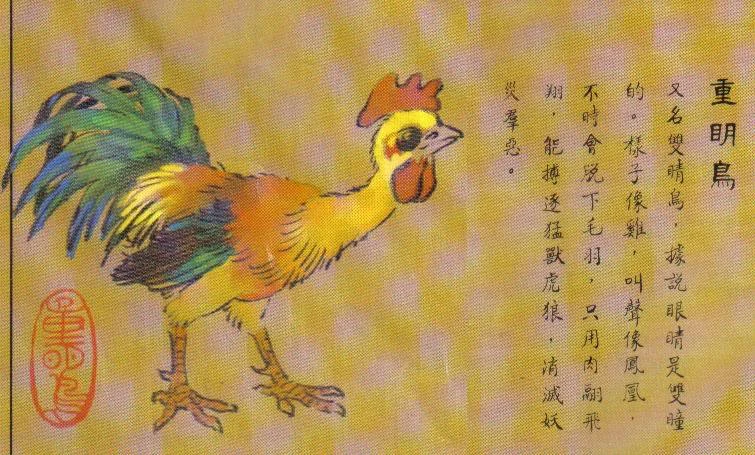 重明鳥
又名雙睛鳥，據說眼睛是雙瞳
的。樣子像雞，叫聲像鳳凰，
不時會脫下毛羽，只用肉翮飛
翔，能搏逐猛獸虎狼，消滅妖
災羣惡。